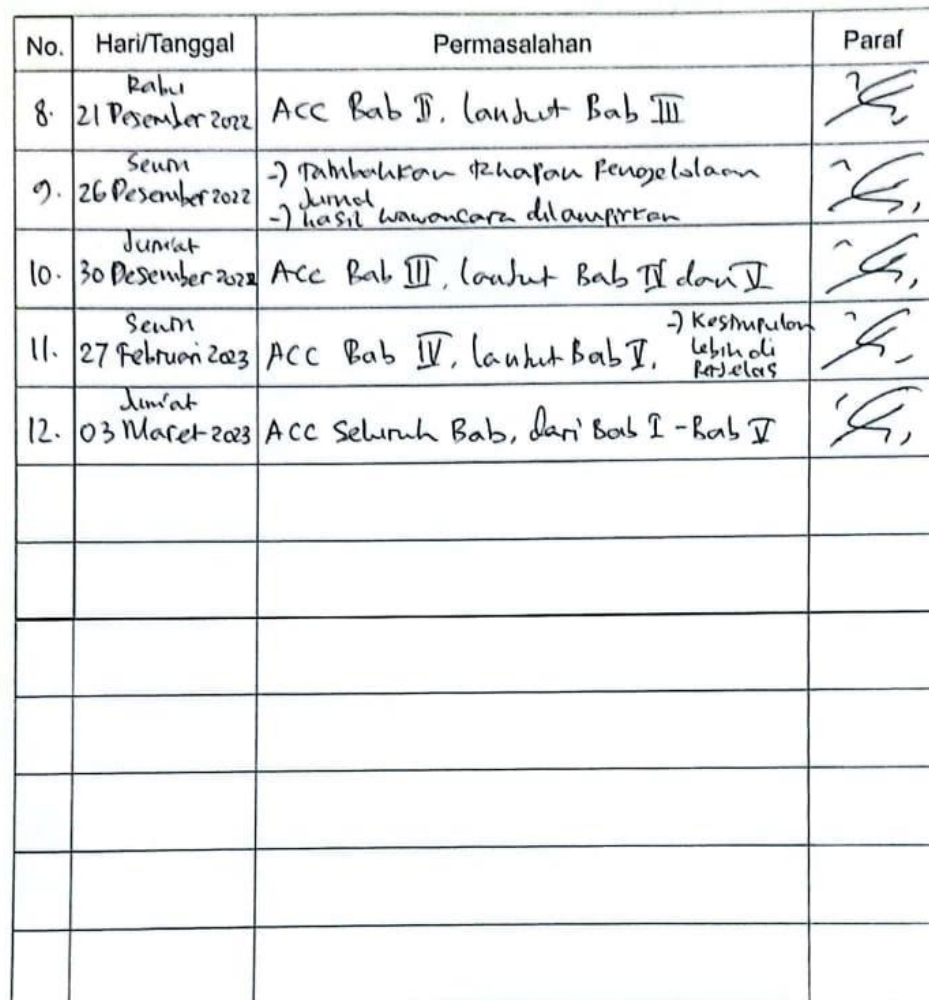 No. Hari/Tanggal Permasalahan Paraf
Rabu
8. 21 Desember 2022 ACC Bab II, lanjut Bab III
Senin
9. 26 Desember 2022 -) Tambahkan tahapan Pengelolaan
Jurnal
-) hasil wawancara dilampirkan
Jum'at
10. 30 Desember 2022 Acc Bab III, lanjut Bab IV dan V
Senin
11. 27 Februari 2023 ACC Bab IV, lanjut Bab V, -) Kesimpulan
lebih di
Perjelas
Jum'at
12. 03 Maret 2023 ACC Seluruh Bab, dari Bab I - Bab V